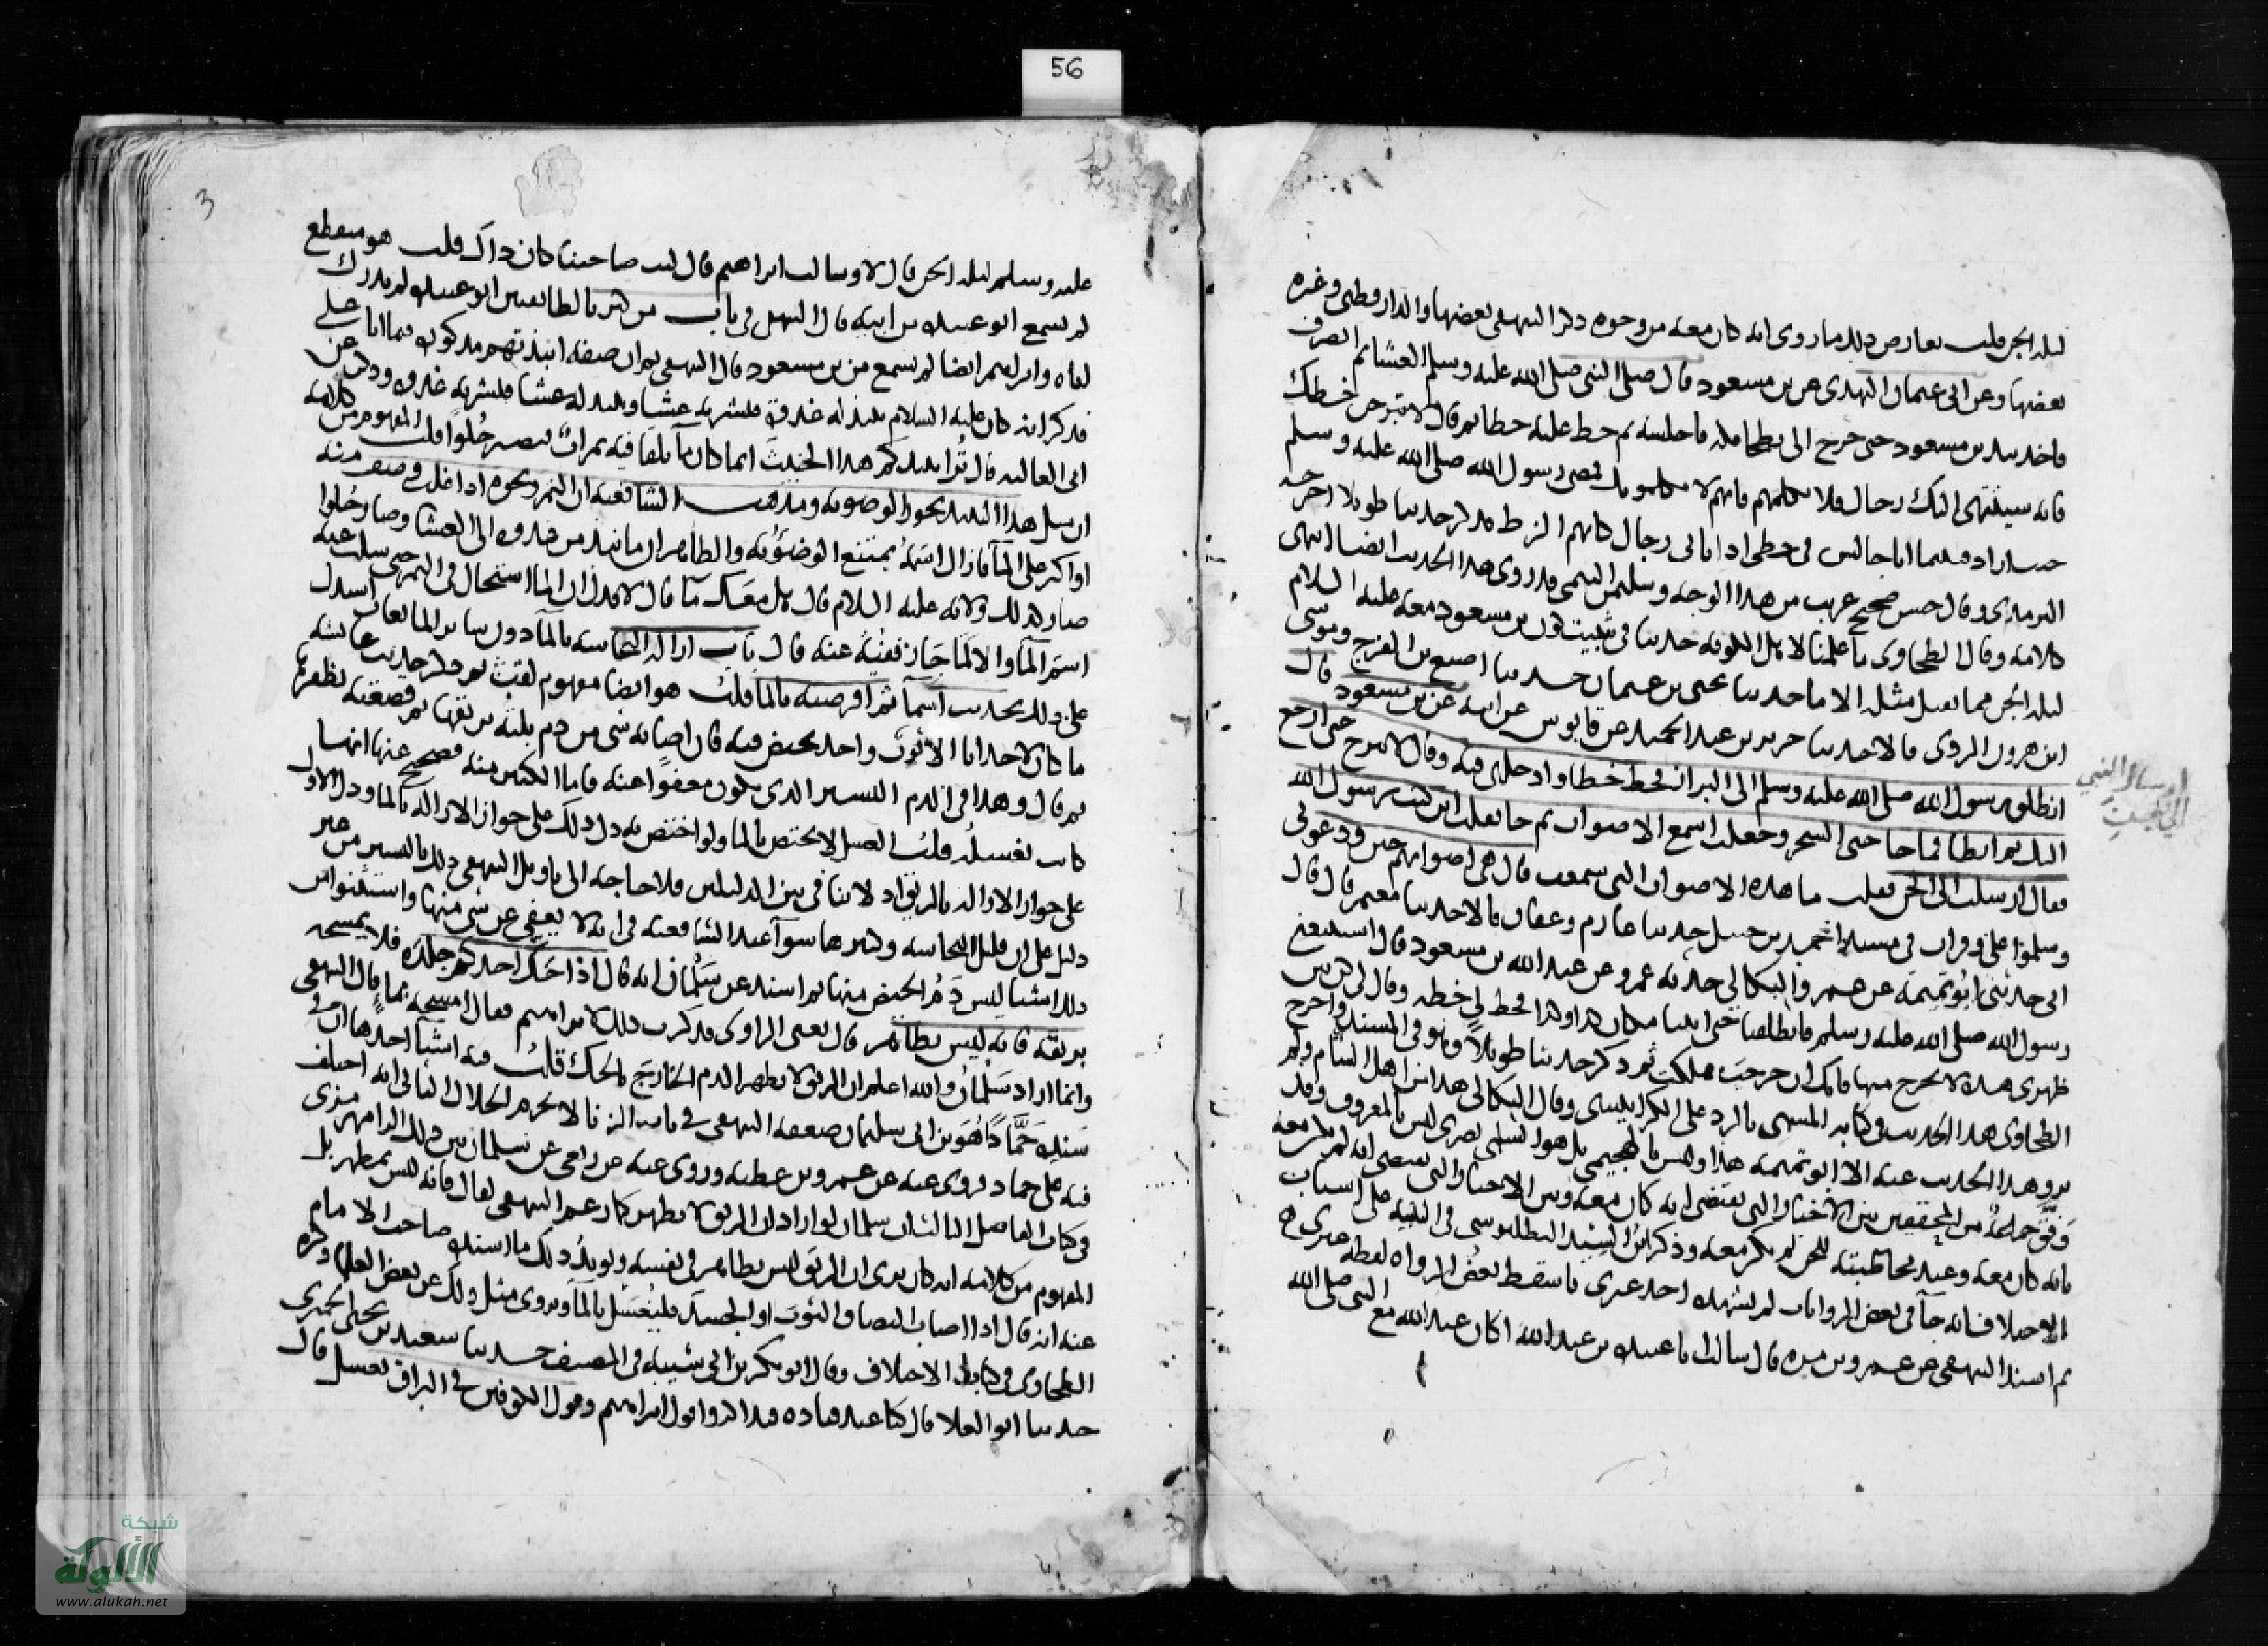 56
ليلة الجن قلت يعارض ذلك ما روى انه كان معه من وجوه ذكر البيهقى بعضها والدارقطنى وغيره
بعضها وعن ابى عثمان النهدى عن بن مسعود قال صلى النبى صلى الله عليه وسلم العشا ثم انصرف
فاخذ بيد بن مسعود حتى خرج الى بطحا مكة فاجلسه ثم خط عليه خطا ثم قال لا تبرحن خطك
فانه سينتهى اليك رجال فلا تكلمهم فانهم لا يكلمونك فمضى رسول الله صلى الله عليه وسلم
حيث اراد فبينما انا جالس فى خطى اذ اتانى رجال كانهم الزط فذكر حديثا طويلا اخرجه
الترمذى وقال حسن صحيح غريب من هذا الوجه وسليمن التيمى قد روى هذا الحديث ايضا انتهى
كلامه وقال الطحاوى ما علمنا لاهل الكوفة حديثا فى تثبيت كون بن مسعود معه عليه السلام
ليلة الجن مما يقبل مثله الا ما حدثنا يحيى بن عثمان حدثنا اصبغ بن الفرج وموسى
ابن هرون البردى قالا حدثنا جرير بن عبد الحميد عن قابوس عن ابيه عن بن مسعود قال
انطلق رسول الله صلى الله عليه وسلم الى البراز فخط خطا وادخلنى فيه وقال لا تبرح حتى ارجع
اليك ثم ابطا فما جا حتى السحر وجعلت اسمع الاصوات ثم جا فقلت اين كنت يرسول الله
فقال ارسلت الى الجن فقلت ما هذه الاصوات التى سمعت قال هى اصواتهم حين ودعونى
وسلموا على وقرات فى مسند احمد بن حنبل حدثنا عارم وعفان قالا حدثنا معتمر قال قال
ابى حدثنى ابو تميمة عن عمرو البكالى حدثه عمرو عن عبد الله بن مسعود قال استتبعنى
رسول الله صلى الله عليه وسلم فانطلقنا حتى اتينا مكان كذا وكذا فخط لى خطه وقال لى كن بين
ظهرى هذه لا تخرج منها فانك ان خرجت هلكت ثم ذكر حديثا طويلا وهو فى المسند واخرج
الطحاوى هذا الحديث فى كتابه المسمى بالرد على الكرابيسى وقال البكالى هذا من اهل الشام ولم
يرو هذا الحديث عنه الا ابو تميمة هذا وليس بالهجيمى بل هو السلى بصرى ليس بالمعروف وقد
وفق جماعة من المحققين بين الاخبار التى تقتضى انه كان معه وبين الاخبار التى تقتضى انه لم يكن معه
بانه كان معه وعند مخاطبته للجن لم يكن معه وذكر ابن السيد البطليوسى فى التنبيه على اسباب
الاختلاف انه جآ فى بعض الروايات لم يشهده احد غيرى فاسقط بعض الرواه لفظه غيرى
ثم اسند البيهقى عن عمرو بن مره قال سالت ابا عبيده بن عبد الله اكان عبد الله مع النبى صلى الله
ارسال النبي
الي الجن
3
عليه وسلم ليلة الجن قال لا وسالت ابراهيم قال ليت صاحبنا كان ذاك قلت هو منقطع
لم يسمع ابو عبيده من ابيه قال البيهقى فى باب من كبر بالطائفتين ابو عبيده لم يدرك
اباه وابراهيم ايضا لم يسمع من بن مسعود قال البيهقى ثم ان صفة انبذتهم مذكورة فيما انا على
فذكر انه كان عليه السلام ينبذ له غدوة فيشربه عشيا وينبذ له عشا فيشربه غدوه وذكر عن
ابى العاليه قال ترا نبيذكم هذا الخبيث انما كان مآ يلقا فيه تمرات فيصير حلوا قلت المفهوم من كلامه
ان مثل هذا النبيذ يجوز الوضو به ومذهب الشافعيه ان التمر ونحوه اذا اغلى وصف منه
او اكثر على المآ فازال اسمه يمتنع الوضؤ به والظاهر ان ما نبذ من غدوه الى العشا وصار حلوا
صار كذلك ولانه عليه السلام قال هل معك مآ قال لا فدل ان الما استحال فى التمر حتى سلب عنه
اسم المآ والا لما جاز نفيه عنه قال باب ازاله النجاسه بالمآ دون سائر المايعات استدل
على ذلك بحديث اسمآ ثم اقرصيه بالما قلت هو ايضا مفهوم لقب ثم ذكر حديث عائشه
ما كان لاحدانا الا ثوب واحد تحيض فيه فان اصابه شى من دم بلته بريقها ثم قصعته بظفرها
ثم قال وهذا فى الدم اليسير الذى يكون معفوا عنه فاما الكثير منه فصحيح عنها انها
كانت تغسله قلت الغسل لا يختص بالما ولو اختص به دل ذلك على جواز الازاله بالما ودل الاول
على جواز الازاله بالريق اذ لا تنافى بين الدليلين فلا حاجه الى تاويل البيهقى ذلك باليسير من غير
دليل على ان قليل النجاسه وكثيرها سوآ عند الشافعيه فى انه لا يعفى عن شى منها واستثنوا من
ذلك اشيا ليس دم الحيض منها ثم اسند عن سلمان انه قال اذا حك احدكم جلده فلا يمسحه
بريقه فانه ليس بطاهر قال يعنى الراوى فذكرت ذلك لابراهيم فقال امسحه بما قال البيهقى
وانما اراد سلمان والله اعلم ان الريق لا يطهر الدم الخارج بالحك قلت فيه اشيآ احدها ان فى
سنده حمادا هو بن ابى سليمان ضعفه البيهقى فى باب الزنا لا يحرم الحلال الثانى انه اختلف
فيه على حماد فروى عنه عن عمرو بن عطيه وروى عنه عن ربعى عن سلمان بين ذلك الرامهرمزى
فى كتاب الفاصل الثالث ان سلمان لو اراد ان الريق لا يطهر كما زعم البيهقى لقال فانه ليس بمطهر بل
المفهوم من كلامه انه كان يرى ان الريق ليس بطاهر فى نفسه ويؤيد ذلك ما اسنده صاحب الامام
عنه انه قال اذا اصاب البصاق الثوب او الجسد فليغسل بالمآ ويروى مثل ذلك عن بعض العلما وذكره
الطحاوى فى كتاب الاختلاف وقال ابو بكر بن ابى شيبه فى المصنف حدثنا سعيد بن يحيى الحميرى
حدثنا ابو العلا قال كنا عند قتاده فتذاكروا قول ابراهيم وقول الكوفيين فى البزاق يغسل قال
شبكة
الألوكة
www.alukah.net